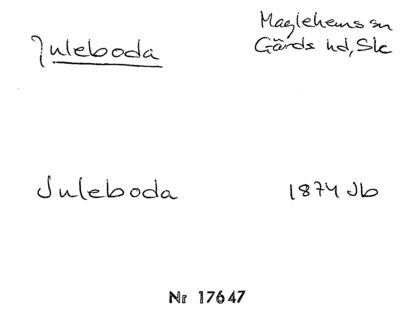 Juleboda
Maglehems sn
Gärds hd, Sk
Juleboda
1874 Jb
Nr 17647